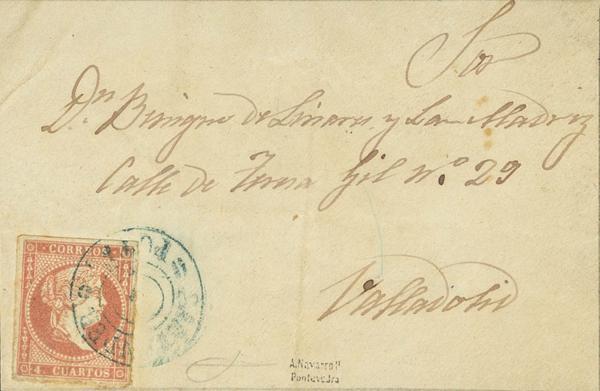 Sor
Dn Benigno de Linares y La Madriz
Calle de Teresa Gil No. 29
Valladolid
CORREOS
4 CUARTOS
A. Navarro P.
Pontevedra